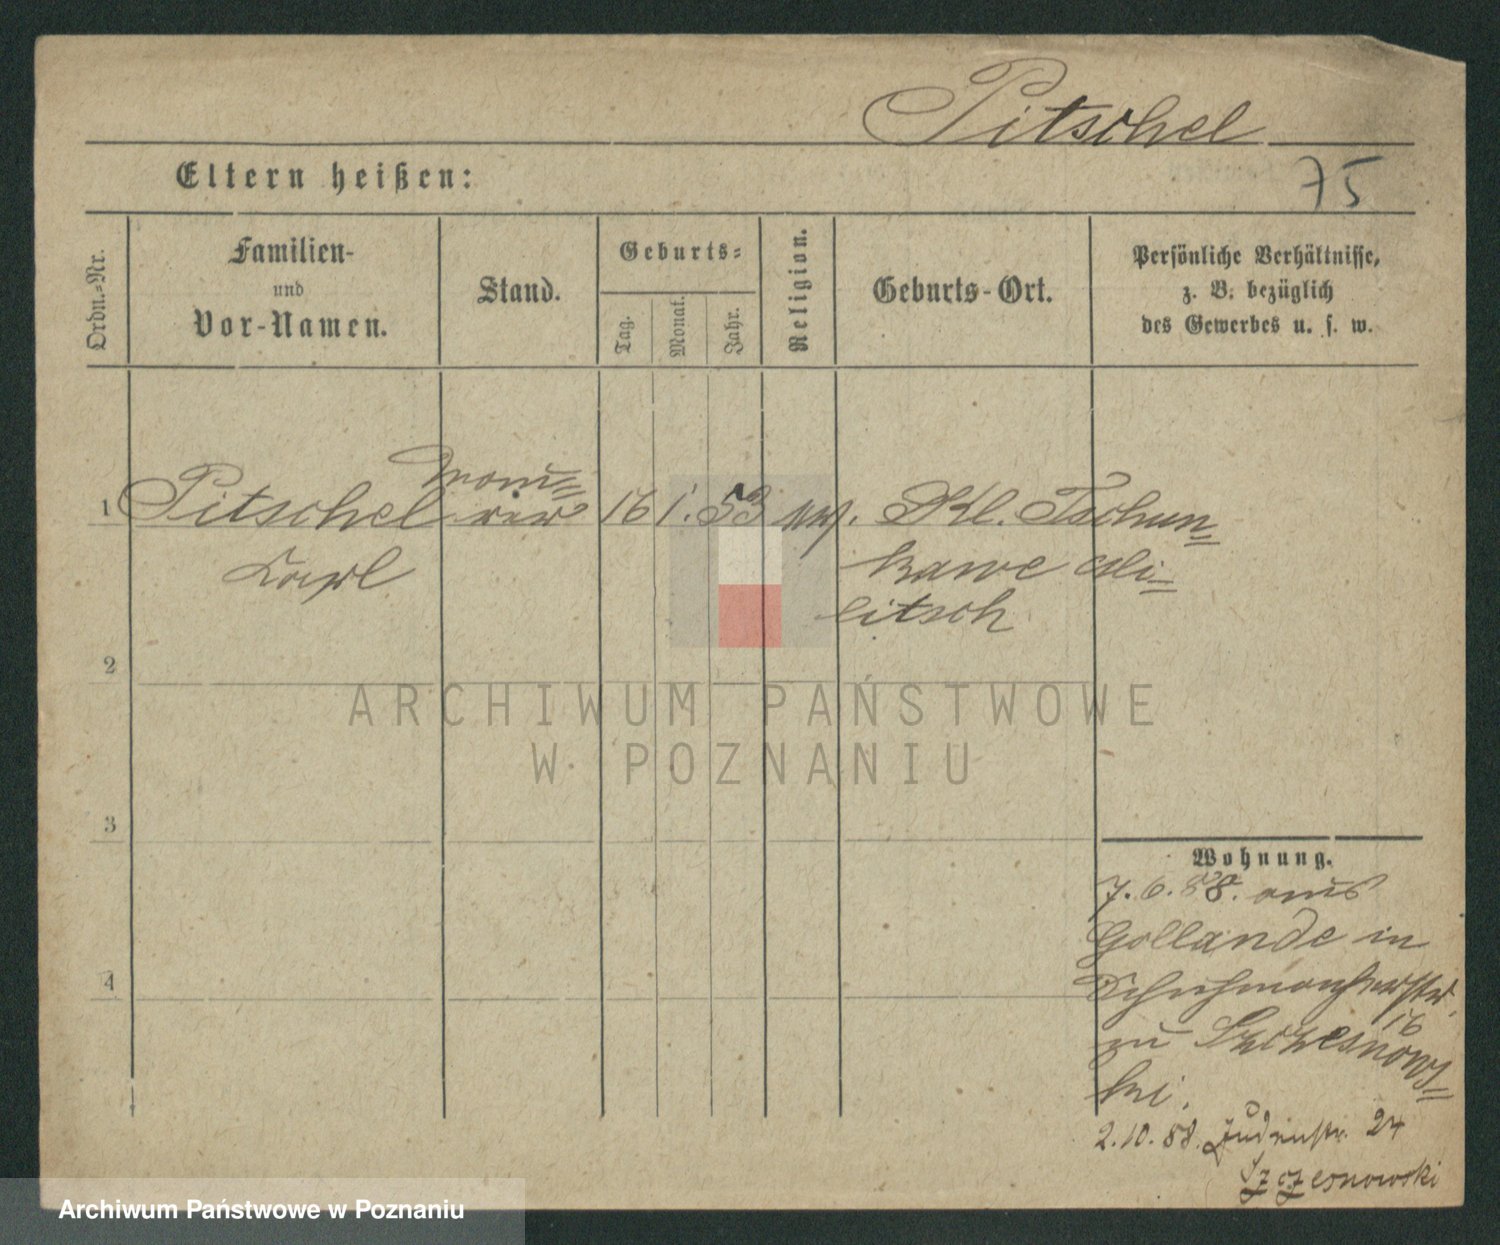 Pitschel
Eltern heißen:
75
Ordn.-Nr.
Familien-
und
Vor-Namen.
Stand.
Geburts-
Tag.
Monat.
Jahr.
Religion.
Geburts-Ort.
Persönliche Verhältnisse,
z. B. bezüglich
des Gewerbes u. s. w.
1 Pitschel Mau=
rer 16 1. 53 ev. Kl. Tschun=
Carl kawe Mi=
litsch
2
ARCHIWUM PAŃSTWOWE
W POZNANIU
3
Wohnung.
7. 6. 88. aus
Gollande in
4
Schuhmacherstr.
16
zu Szczesnows=
ki.
2. 10. 88. Judenstr. 24
Szczesnowski
Archiwum Państwowe w Poznaniu